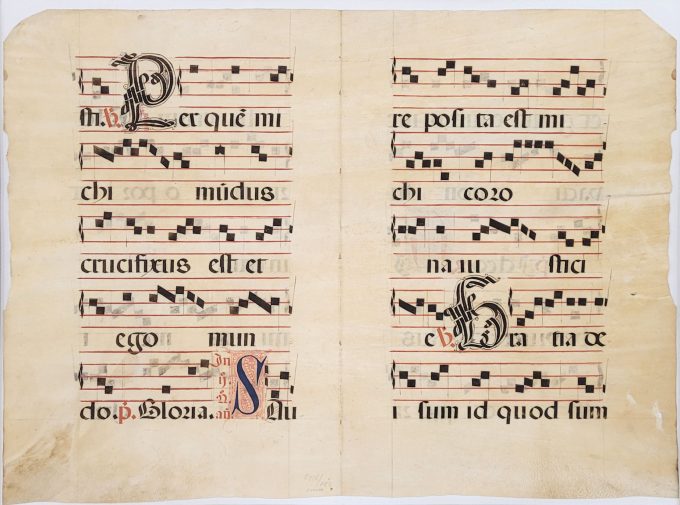 sti. ℣. Per quē mi
chi mūdus
crucifixus est et
ego mun
do. p̄. Gloria. SAu
re posi ta est mi
chi coro
na iu stici
e ℣. Gra tia de
i sum id quod sum